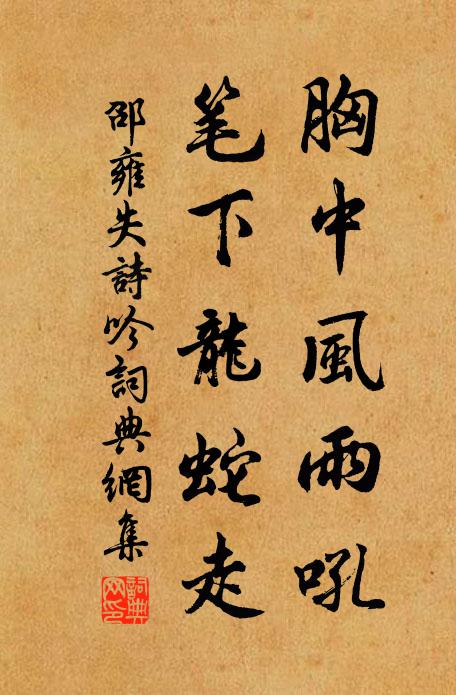 胸中風雨吼
笔下龍蛇走
邵雍失詩吟詞典網集
詞典网印